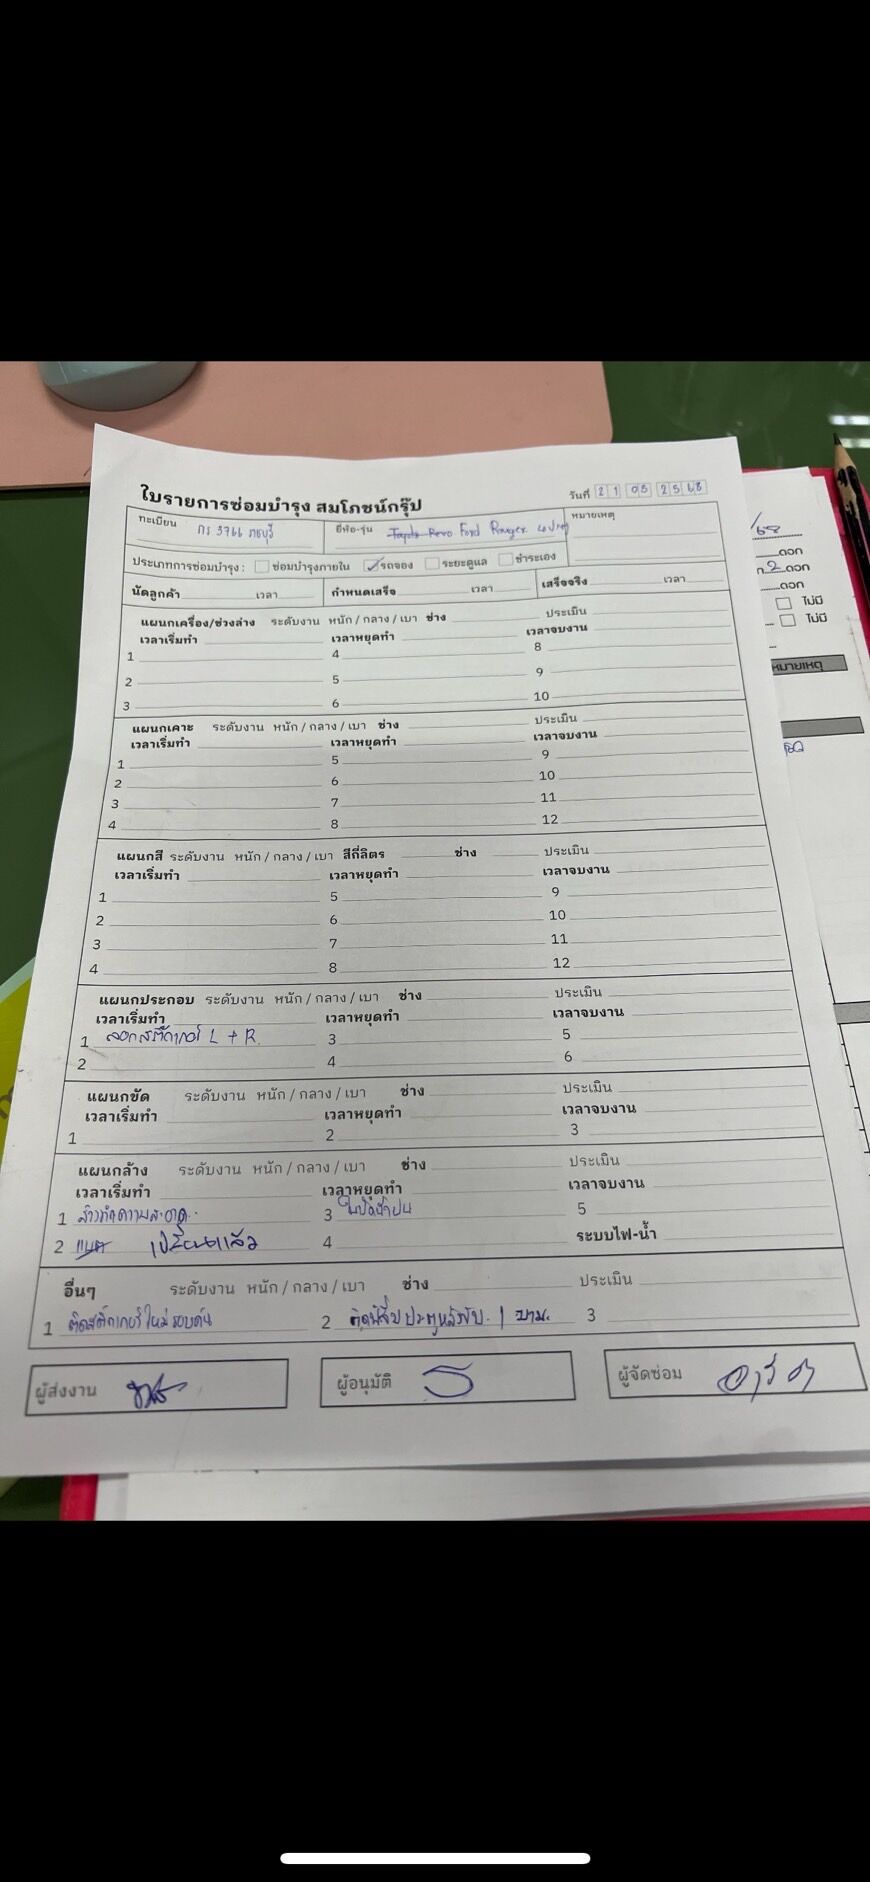 ใบรายการซ่อมบำรุง สมโภชน์กรุ๊ป
วันที่ 21 05 2568
ทะเบียน กร 3766 ราชบุรี ยี่ห้อ-รุ่น Toyota Revo Ford Ranger หมายเหตุ
ประเภทการซ่อมบำรุง : ซ่อมบำรุงภายใน ✓ รถจอง ระยะดูแล ชำระเอง
นัดลูกค้า เวลา กำหนดเสร็จ เวลา เสร็จจริง เวลา
แผนกเครื่อง/ช่วงล่าง ระดับงาน หนัก / กลาง / เบา ช่าง ประเมิน
เวลาเริ่มทำ เวลาหยุดทำ เวลาจบงาน
1 4 8
2 5 9
3 6 10
แผนกเคาะ ระดับงาน หนัก / กลาง / เบา ช่าง ประเมิน
เวลาเริ่มทำ เวลาหยุดทำ เวลาจบงาน
1 5 9
2 6 10
3 7 11
4 8 12
แผนกสี ระดับงาน หนัก / กลาง / เบา สีกี่ลิตร ช่าง ประเมิน
เวลาเริ่มทำ เวลาหยุดทำ เวลาจบงาน
1 5 9
2 6 10
3 7 11
4 8 12
แผนกประกอบ ระดับงาน หนัก / กลาง / เบา ช่าง ประเมิน
เวลาเริ่มทำ เวลาหยุดทำ เวลาจบงาน
1 ลอกสติ๊กเกอร์ L + R 3 5
2 4 6
แผนกขัด ระดับงาน หนัก / กลาง / เบา ช่าง ประเมิน
เวลาเริ่มทำ เวลาหยุดทำ เวลาจบงาน
1 2 3
แผนกล้าง ระดับงาน หนัก / กลาง / เบา ช่าง ประเมิน
เวลาเริ่มทำ เวลาหยุดทำ เวลาจบงาน
1 ล้างทำความสะอาด 3 ใบปัดน้ำฝน 5
2 แบต เปลี่ยนแล้ว 4 ระบบไฟ-น้ำ
อื่นๆ ระดับงาน หนัก / กลาง / เบา ช่าง ประเมิน
1 ติดสติ๊กเกอร์ใหม่รอบคัน 2 ประตูหลัง 1 บาน 3
ผู้ส่งงาน ผู้อนุมัติ ผู้จัดซ่อม
ดอก
2 ดอก
ดอก
ไม่มี
ไม่มี
หมายเหตุ